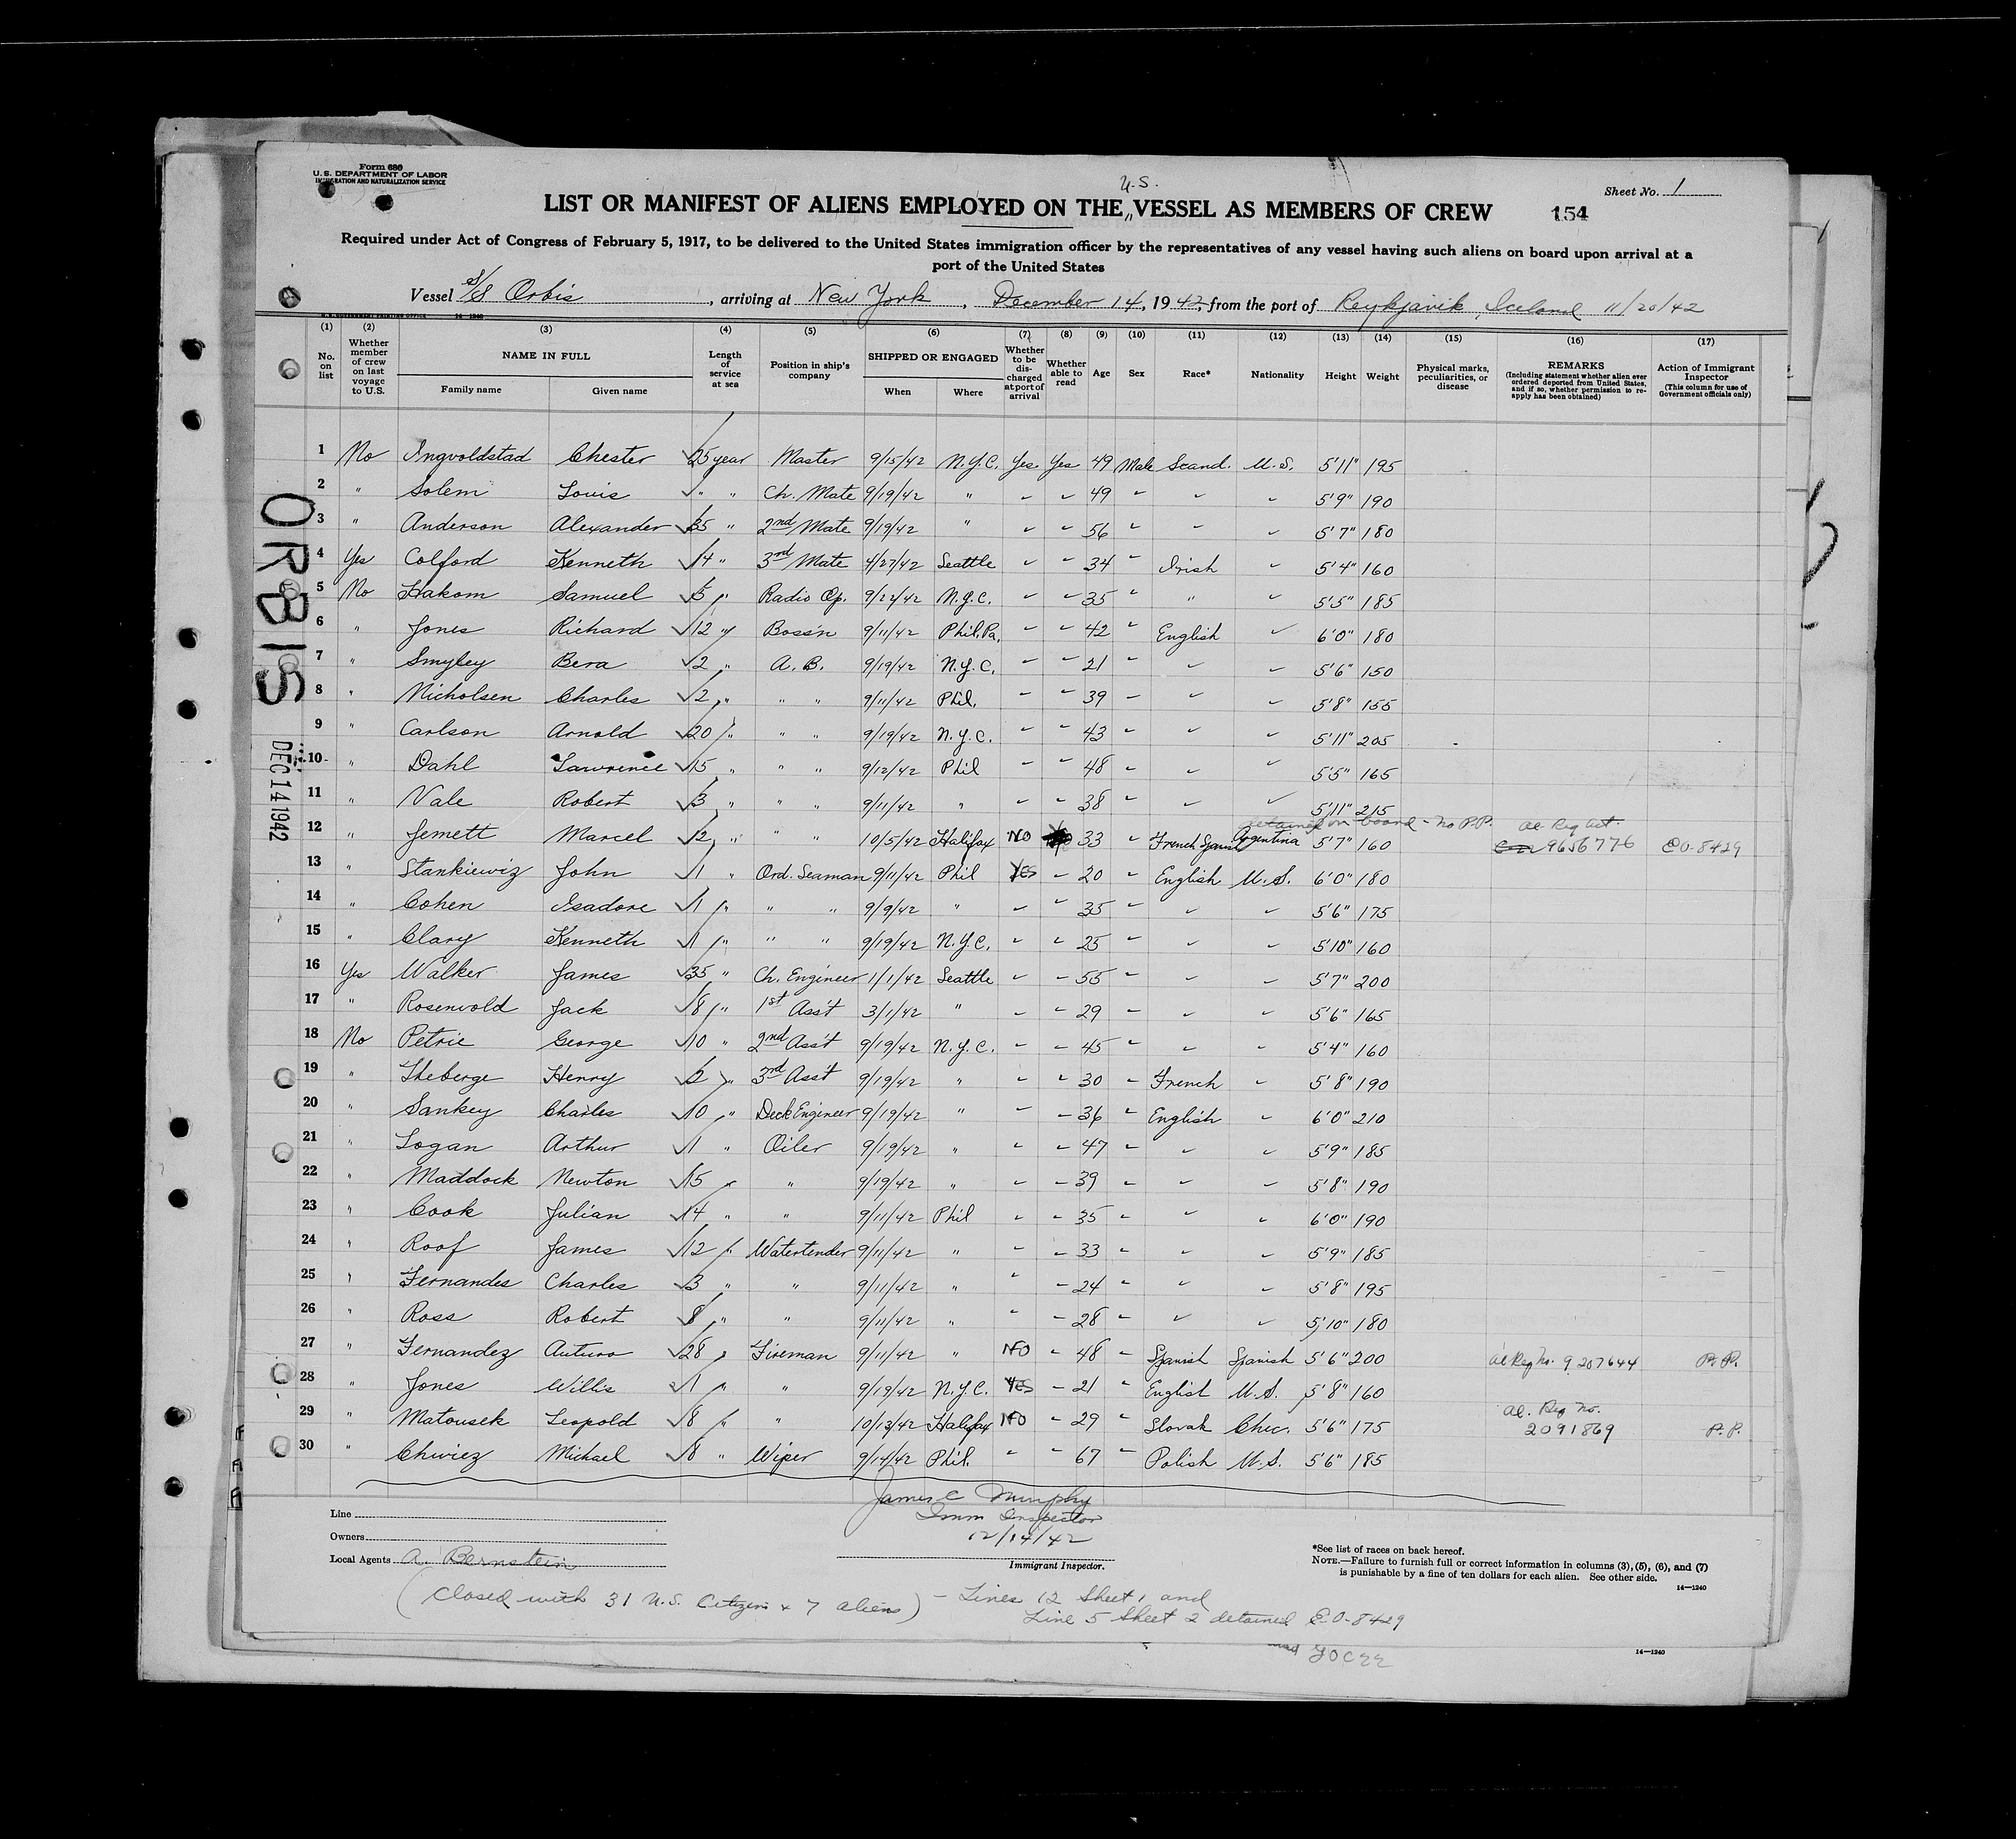 Form 680
U.S. DEPARTMENT OF LABOR
IMMIGRATION AND NATURALIZATION SERVICE
Sheet No. 1
U.S.
LIST OR MANIFEST OF ALIENS EMPLOYED ON THE VESSEL AS MEMBERS OF CREW 154
Required under Act of Congress of February 5, 1917, to be delivered to the United States immigration officer by the representatives of any vessel having such aliens on board upon arrival at a
port of the United States
Vessel S/S Orbis, arriving at New York, December 14, 1942, from the port of Reykjavik, Iceland 11/20/42
(1) (2) (3) (4) (5) (6) (7) (8) (9) (10) (11) (12) (13) (14) (15) (16) (17)
No. on list
Whether member of crew on last voyage to U.S.
NAME IN FULL
Family name Given name
Length of service at sea
Position in ship's company
SHIPPED OR ENGAGED
When Where
Whether to be discharged at port of arrival
Whether able to read
Age
Sex
Race*
Nationality
Height
Weight
Physical marks, peculiarities, or disease
REMARKS
(Including statement whether alien ever ordered deported from United States, and if so, whether permission to reapply has been obtained)
Action of Immigrant Inspector
(This column for use of Government officials only)
1 No Ingvoldstad Chester 25 year Master 9/15/42 N.Y.C. Yes Yes 49 Male Scand. U.S. 5'11" 195
2 " Solem Louis " " Ch. Mate 9/19/42 " " " 49 " " " 5'9" 190
3 " Anderson Alexander 35 " 2nd Mate 9/19/42 " " " 56 " " " 5'7" 180
4 Yes Colford Kenneth 14 " 3rd Mate 4/27/42 Seattle " " 34 " Irish " 5'4" 160
5 No Hakom Samuel 5 " Radio Op. 9/22/42 N.Y.C. " " 35 " " " 5'5" 185
6 " Jones Richard 12 " Boss'n 9/11/42 Phil. Pa. " " 42 " English " 6'0" 180
7 " Smyley Bera 2 " A.B. 9/19/42 N.Y.C. " " 21 " " " 5'6" 150
8 " Nicholsen Charles 2 " " " 9/11/42 Phil. " " 39 " " " 5'8" 155
9 " Carlson Arnold 20 " " " 9/19/42 N.Y.C. " " 43 " " " 5'11" 205
10 " Dahl Lawrence 15 " " " 9/12/42 Phil " " 48 " " " 5'5" 165
11 " Vale Robert 3 " " " 9/11/42 " " " 38 " " " 5'11" 215
detained on board - no P.P. al Reg act.
12 " Jemett Marcel 12 " " " 10/5/42 Halifax NO 33 " French Spanish Argentina 5'7" 160 9656776 EO-8429
13 " Stankiewiz John 1 " Ord. Seaman 9/11/42 Phil YES " 20 " English U.S. 6'0" 180
14 " Cohen Isadore 1 " " " 9/9/42 " " " 35 " " " 5'6" 175
15 " Clary Kenneth 1 " " " 9/19/42 N.Y.C. " " 25 " " " 5'10" 160
16 Yes Walker James 35 " Ch. Engineer 1/1/42 Seattle " " 55 " " 5'7" 200
17 " Rosenvold Jack 8 " 1st Ass't 3/1/42 " " " 29 " " " 5'6" 165
18 No Petrie George 10 " 2nd Ass't 9/19/42 N.Y.C. " " 45 " " " 5'4" 160
19 " Theberge Henry 2 " 3rd Ass't 9/19/42 " " " 30 " French " 5'8" 190
20 " Sankey Charles 10 " Deck Engineer 9/19/42 " " " 36 " English " 6'0" 210
21 " Logan Arthur 1 " Oiler 9/19/42 " " " 47 " " " 5'9" 185
22 " Maddock Newton 15 " " 9/19/42 " " " 39 " " " 5'8" 190
23 " Cook Julian 14 " " 9/11/42 Phil " " 35 " " " 6'0" 190
24 " Roof James 12 " Watertender 9/11/42 " " " 33 " " " 5'9" 185
25 " Fernandes Charles 3 " " 9/11/42 " " " 24 " " " 5'8" 195
26 " Ross Robert 8 " " 9/11/42 " " " 28 " " " 5'10" 180
27 " Fernandez Auturo 28 " Fireman 9/11/42 " NO " 48 " Spanish Spanish 5'6" 200 al Reg No. 9207644 P.P.
28 " Jones Willis 1 " " 9/19/42 N.Y.C. YES " 21 " English U.S. 5'8" 160
al. Reg no.
29 " Matousek Leopold 8 " " 10/13/42 Halifax NO " 29 " Slovak 5'6" 175 2091869 P.P.
30 " Chwiez Michael 8 " Wiper 9/14/42 Phil. " " 67 " Polish U.S. 5'6" 185
ORBIS
DEC 14 1942
James C Murphy
Imm Inspector
12/14/42
Immigrant Inspector.
Line
Owners
Local Agents A. Bernstein
*See list of races on back hereof.
NOTE.—Failure to furnish full or correct information in columns (3), (5), (6), and (7)
is punishable by a fine of ten dollars for each alien. See other side.
14—1240
(Closed with 31 U.S. Citizens & 7 aliens) - Lines 12 Sheet 1 and
Line 5 Sheet 2 detained E.O-8429
14—1240